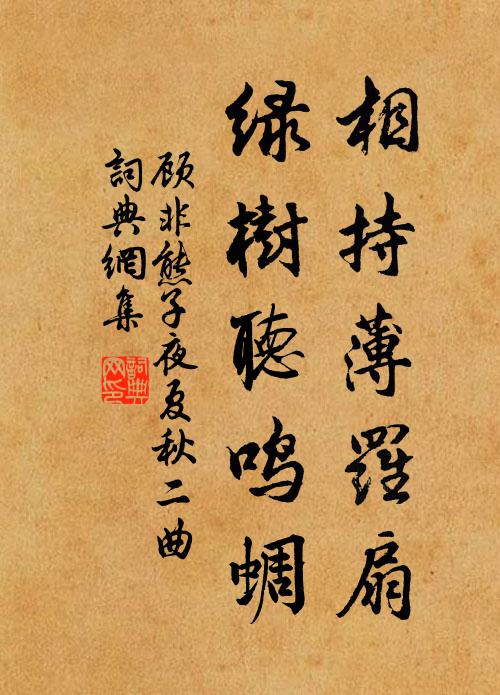 相持薄羅扇
绿樹聽鸣蜩
顾非熊子夜夏秋二曲
詞典網集
詞典
网印